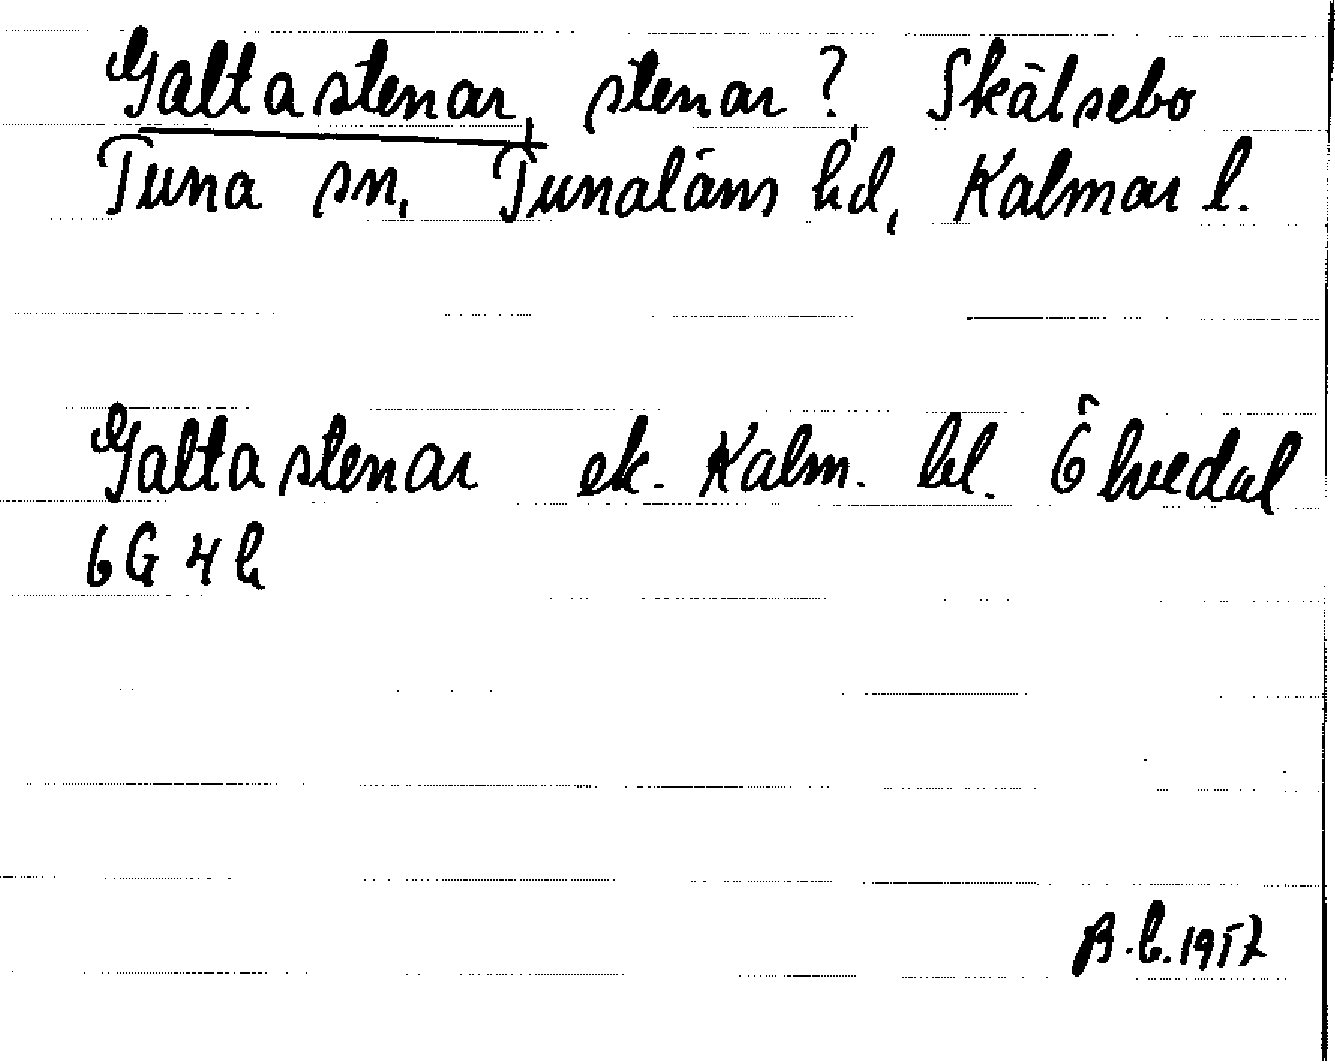 Galtastenar, stenar?, Skälsebo
Tuna sn, Tunaläns hd, Kalmar l.
Galtastenar ek. Kalm. bl. 6 hvedal
6G 4h
B.b. 1957